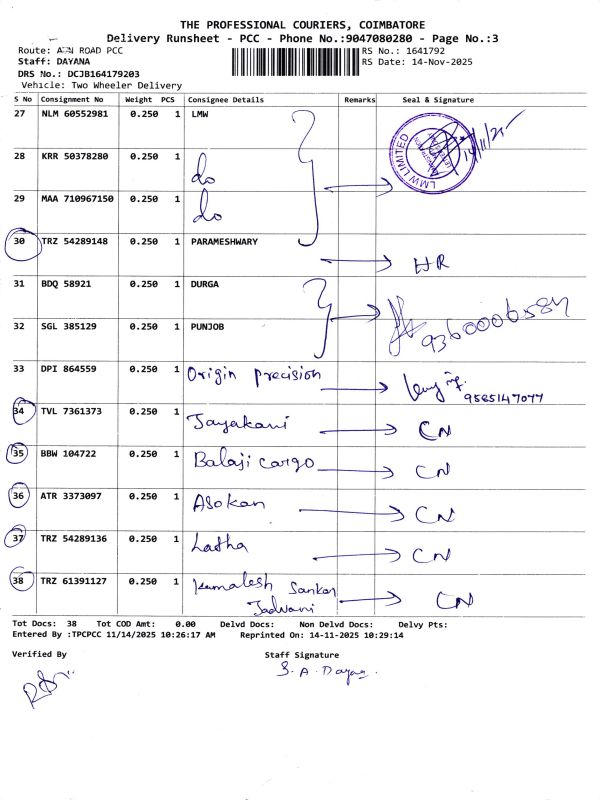 THE PROFESSIONAL COURIERS, COIMBATORE
Delivery Runsheet - PCC - Phone No.:9047080280 - Page No.:3
Route: ROAD PCC
RS No.: 1641792
Staff: DAYANA
RS Date: 14-Nov-2025
DRS No.: DCJB164179203
Vehicle: Two Wheeler Delivery
S No Consignment No Weight PCS Consignee Details Remarks Seal & Signature
27 NLM 60552981 0.250 1 LMW 14/11/25
LMW LIMITED
28 KRR 50378280 0.250 1 do
29 MAA 710967150 0.250 1 do
30 TRZ 54289148 0.250 1 PARAMESHWARY HR
31 BDQ 58921 0.250 1 DURGA
9360006584
32 SGL 385129 0.250 1 PUNJOB
33 DPI 864559 0.250 1 Origin precision
9585147077
34 TVL 7361373 0.250 1 Jayakani CN
35 BBW 104722 0.250 1 Balaji cargo CN
36 ATR 3373097 0.250 1 Asokan CN
37 TRZ 54289136 0.250 1 Latha CN
38 TRZ 61391127 0.250 1 Kamalesh Sankar CN
Jadwani
Tot Docs: 38 Tot COD Amt: 0.00 Delvd Docs: Non Delvd Docs: Delvy Pts:
Entered By :TPCPCC 11/14/2025 10:26:17 AM Reprinted On: 14-11-2025 10:29:14
Verified By Staff Signature
S. A. Dayana.